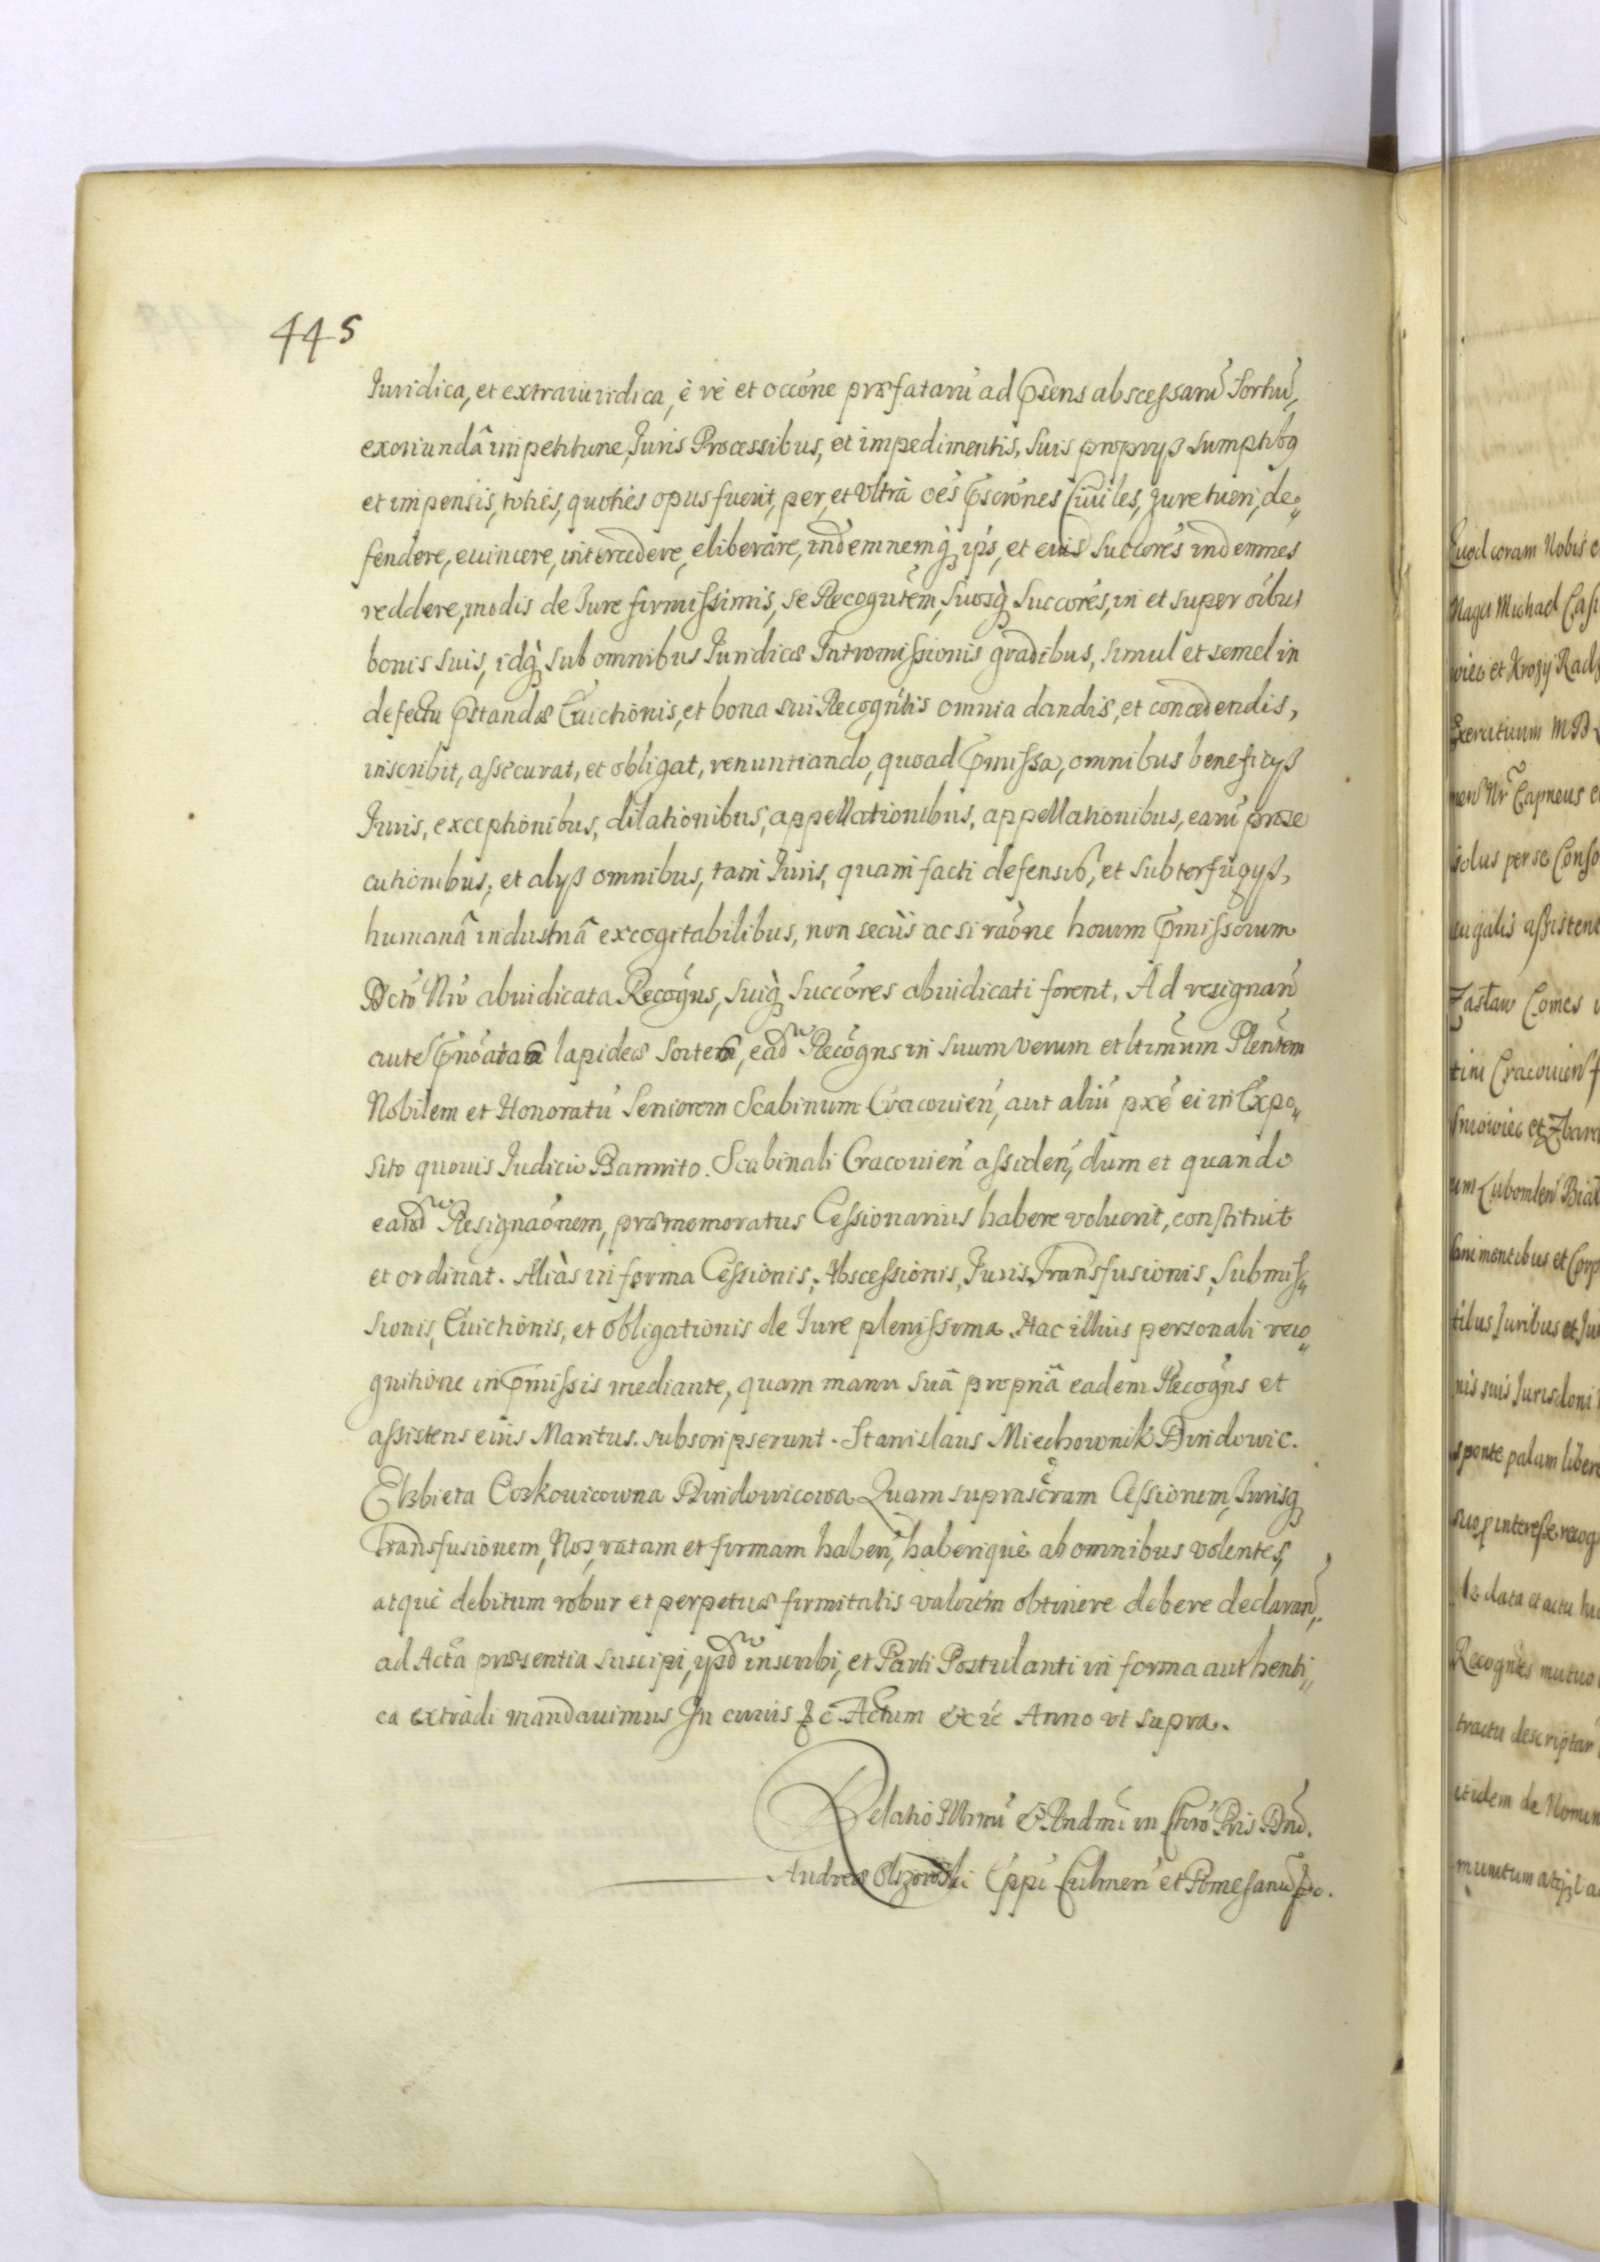 445
Iuridica, et extraiuridica, è rè et occóne præfataru ad p͂sens abscessaru Sortiu,
exoriundâ impetitione, Iuris Processibus, et impedimentis, suis proprys sumptibq
et impensis, toties, quoties opus fuerit, per, et Vltrà oes p͂scrónes Ciuiles, Iure tueri, de„
fendere, euincere, intercedere, eliberare, indemnemq́ ips, et eius Succores indemnes
reddere, modis de Iure firmissimis, se Recognitem, Suosq́ Succores, in et super oibus
bonis suis, idq́ sub omnibus Iuridicæ Intromissionis gradibus, simul et semel in
defectu p͂standæ Euictionis, et bona sui Recogntis omnia dandis, et concedendis,
inscribit, assecurat, et obligat, renuntiando, quoad p͂missa, omnibus beneficys
Iuris, exceptionibus, dilationibus, appellationibus, appellationibus, earu prose
cutionibus, et alys omnibus, tam Iuris, quam facti defensib, et subterfugys,
humanâ industriâ excogitabilibus, non secùs ac si raóne horum p͂missorum
Dcto Nro abiudicata Recogns, suiq́ Succóres abiudicati forent. Ad resignan
aute p͂noatam lapideæ Sortem, ead Recogns in suum verum et ltimum Plentem
Nobilem et Honoratu Seniorem Scabinum Cracouien, aut aliu pxe ei in Expo„
sito quouis Iudicio Bannito Scabinali Cracouien assiden, dum et quando
eand Resignaónem, præmemoratus Cessionarius habere voluerit, constituit
et ordinat. Aliàs in forma Cessionis, Abscessionis, Iuris Transfusionis, Submis„
sionis, Euictionis, et Obligationis de Iure plenissima. Hac illius personali reco„
gnitione in p͂missis mediante, quam manu suâ propriâ eadem Recogns et
assistens eius Maritus subscripserunt. Stanislaus Miechownik Dindowic.
Elzbieta Cozkowicowna Dindowicowa Quam suprascram Cessionem, Iurisq́
Transfusionem, Nos, ratam et firmam haben, haberiquè ab omnibus volentes,
atquè debitum robur et perpetuæ firmitatis valorem obtinere debere declaran,
ad Acta præsentia suscipi, ypd inscribi, et Parti Postulanti in forma authenti„
ca extradi mandauimus In cuius &c Actum &c ic Anno vt supra.
Relatio Illrmi & Rndmi in Chro Pris Dnd.
Andreæ Olszowski Eppi Culmen et Pomesanie &c.
Quod coram Nobis e
Nagu Michael Casi
wiec et Krozy Rad
Exercituum MD
men Nr Capneus e
solus per se Conso
iugalis assistent
Zasław Comes
tini Cracouiens
sniowiec et Zbara
um Lubomlen Biał
tilus Iuribus et Iu
nis suis Iurisdoni
sponte palam libere
suoq́ interesse recog
Recogntes mutuo
tractu descriptar
itidem de Nomin